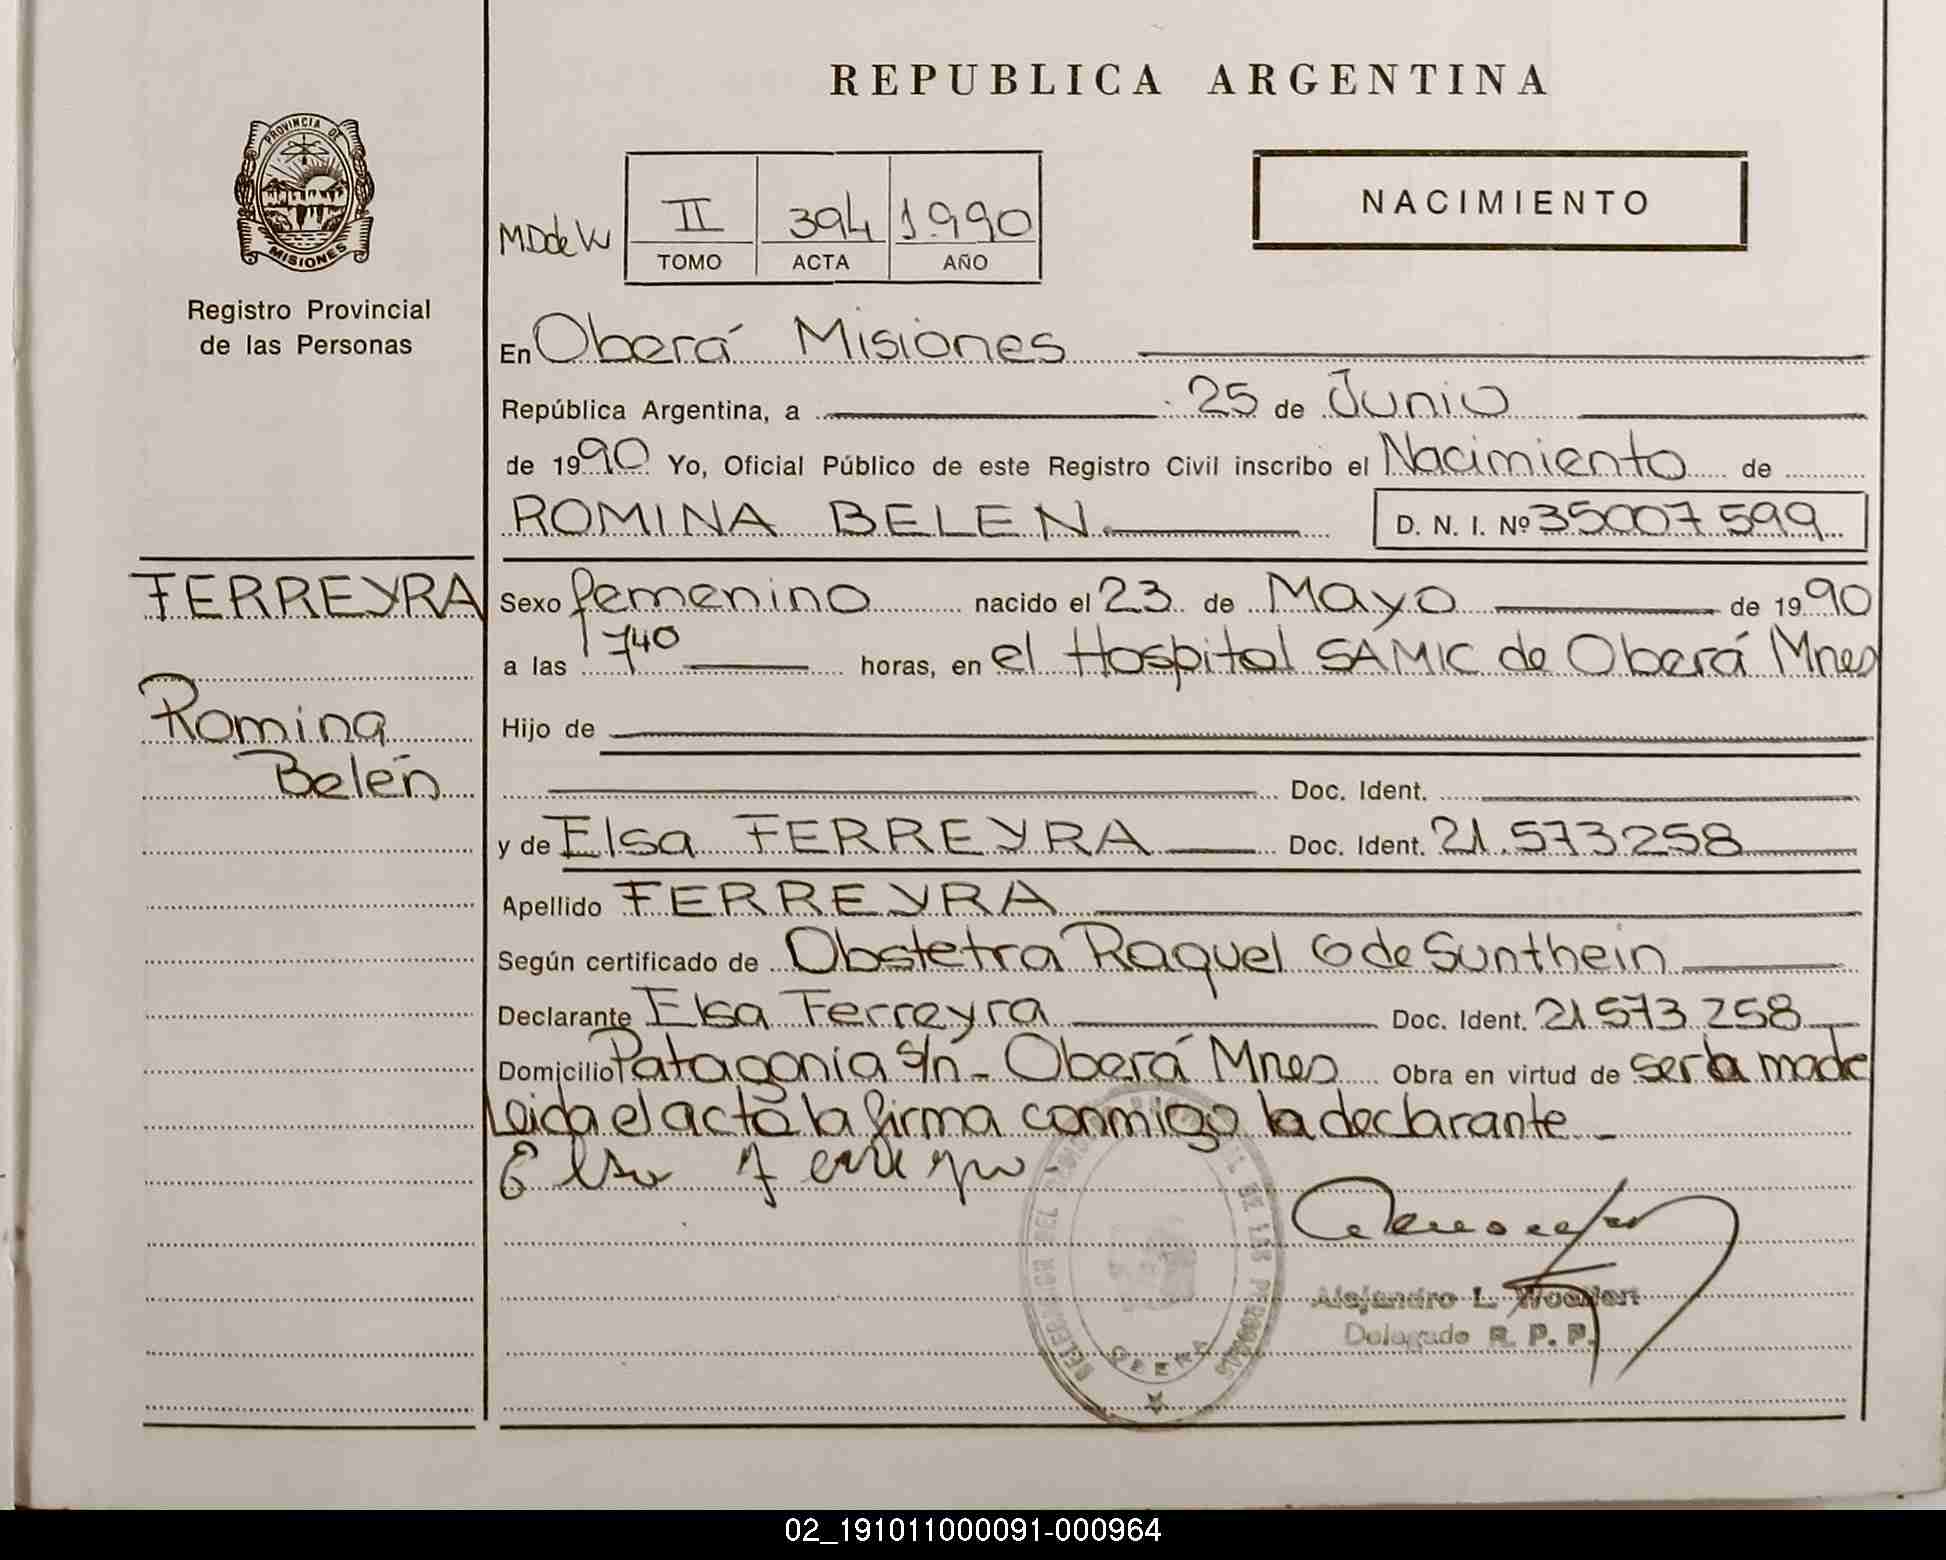 REPUBLICA ARGENTINA
PROVINCIA DE
MISIONES
Registro Provincial
de las Personas
NACIMIENTO
MDdeW
II 394 1990
TOMO ACTA AÑO
En Oberá Misiones
República Argentina, a 25 de Junio
de 1990 Yo, Oficial Público de este Registro Civil inscribo el Nacimiento de
ROMINA BELEN D. N. I. Nº 35007599
FERREYRA
Romina
Belén
Sexo femenino nacido el 23 de Mayo de 1990
a las 740 horas, en el Hospital SAMIC de Oberá Mnes
Hijo de
Doc. Ident.
y de Elsa FERREYRA Doc. Ident. 21.573258
Apellido FERREYRA
Según certificado de Obstetra Raquel G de Sunthein
Declarante Elsa Ferreyra Doc. Ident. 21573258
Domicilio Patagonia s/n - Oberá Mnes Obra en virtud de ser la madre
Leida el acta la firma conmigo la declarante -
Elsa Ferreyra
Alejandro L.
Delegado R. P. P.
OBERA
02_191011000091-000964